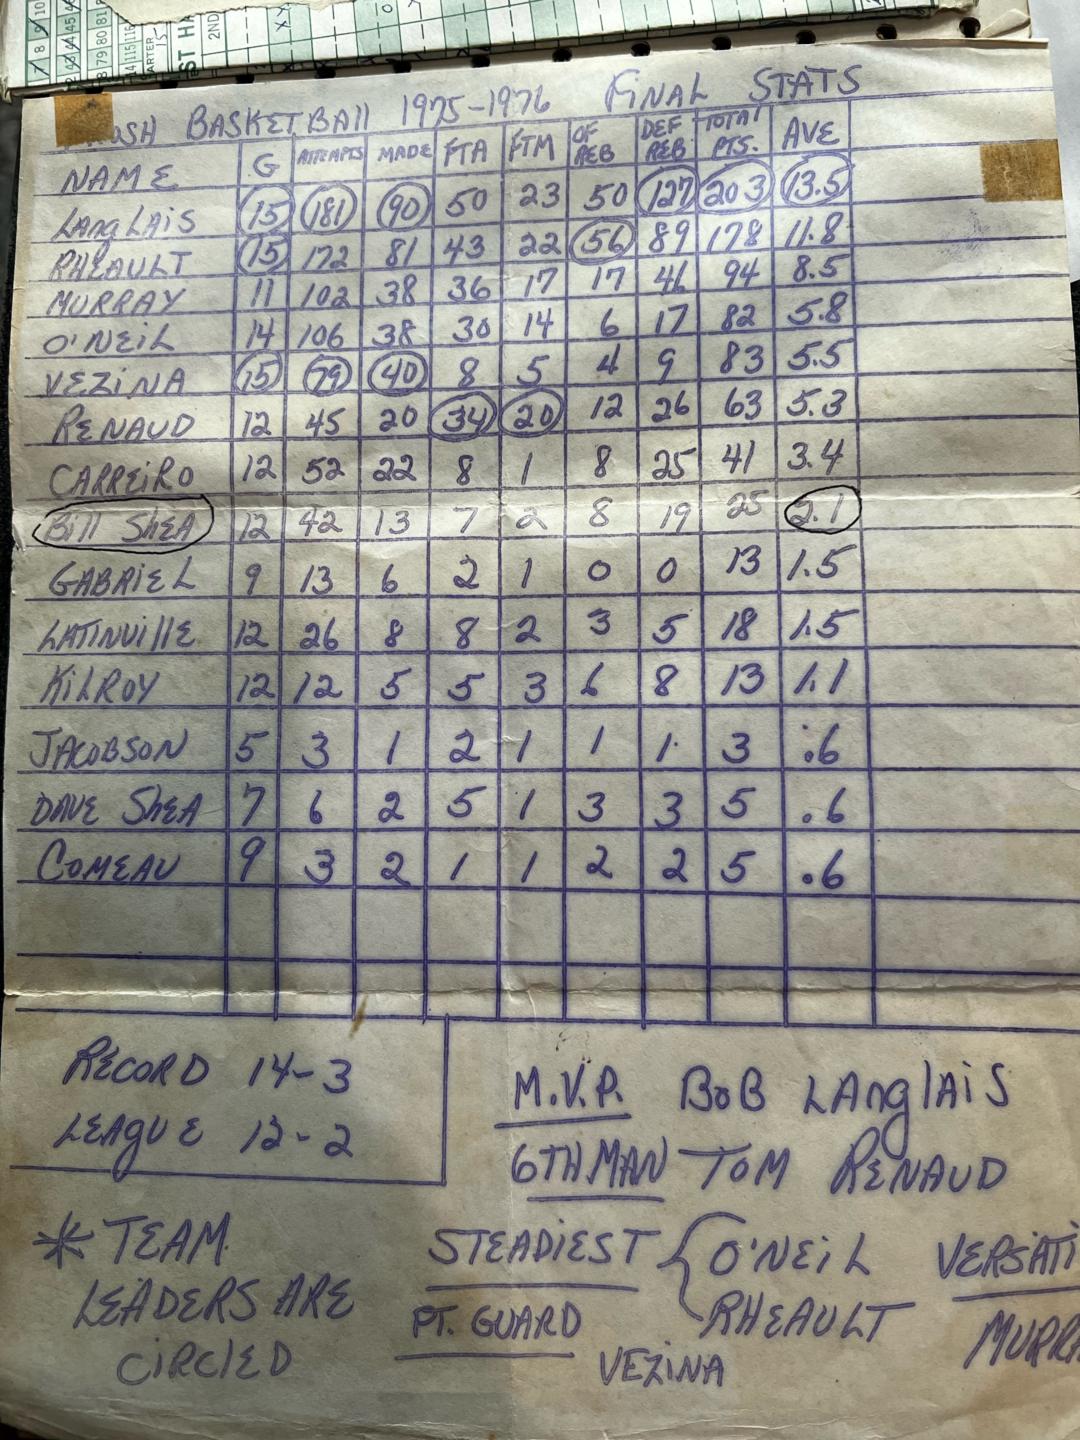 BASKETBALL 1975-1976 FINAL STATS
NAME G ATTEMPTS MADE FTA FTM OF REB DEF REB TOTAL PTS. AVE
LANGLAIS 15 181 90 50 23 50 127 203 13.5
RHEAULT 15 172 81 43 22 56 89 178 11.8
MURRAY 11 102 38 36 17 17 46 94 8.5
O'NEIL 14 106 38 30 14 6 17 82 5.8
VEZINA 15 79 40 8 5 4 9 83 5.5
RENAUD 12 45 20 34 20 12 26 63 5.3
CARREIRO 12 52 22 8 1 8 25 41 3.4
Bill SHEA 12 42 13 7 2 8 19 25 2.1
GABRIEL 9 13 6 2 1 0 0 13 1.5
LATINVILLE 12 26 8 8 2 3 5 18 1.5
KILROY 12 12 5 5 3 6 8 13 1.1
JACOBSON 5 3 1 2 1 1 1 3 .6
DAVE SHEA 7 6 2 5 1 3 3 5 .6
COMEAU 9 3 2 1 1 2 2 5 .6
RECORD 14-3
LEAGUE 12-2
M.V.P. BOB LANGLAIS
6TH MAN TOM RENAUD
* TEAM LEADERS ARE CIRCLED
STEADIEST { O'NEIL
RHEAULT
PT. GUARD
VEZINA